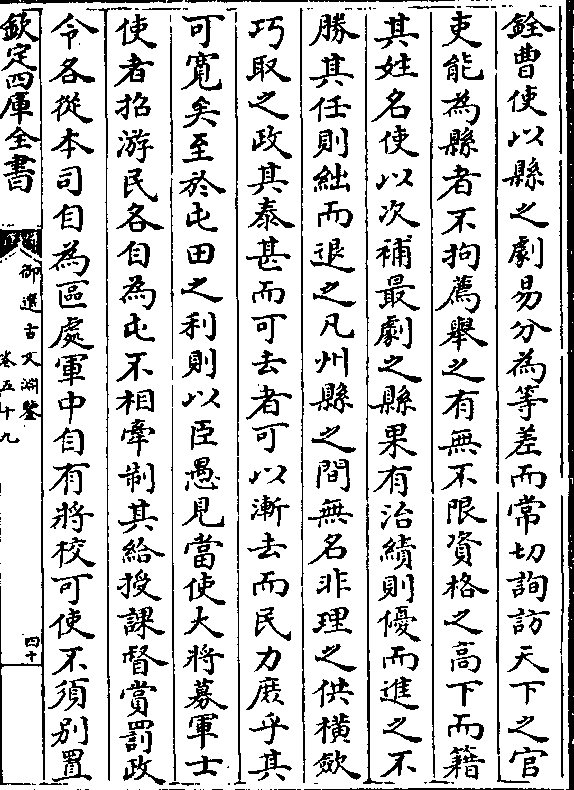 銓曹使以縣之劇易分為等差而常切詢訪天下之官
吏能為縣者不拘薦舉之有無不限資格之高下而籍
其姓名使以次補最劇之縣果有治績則優而進之不
勝其任則絀而退之凡州縣之間無名非理之供橫歛
巧取之政其泰甚而可去者可以漸去而民力庶乎其
可寛矣至於屯田之利則以臣愚見當使大將募軍士
使者招游民各自為屯不相牽制其給授課督賞罰政
令各從本司自為區處軍中自有將校可使不須别置
欽定四庫全書
御選古文淵鑒
卷五十九
四十